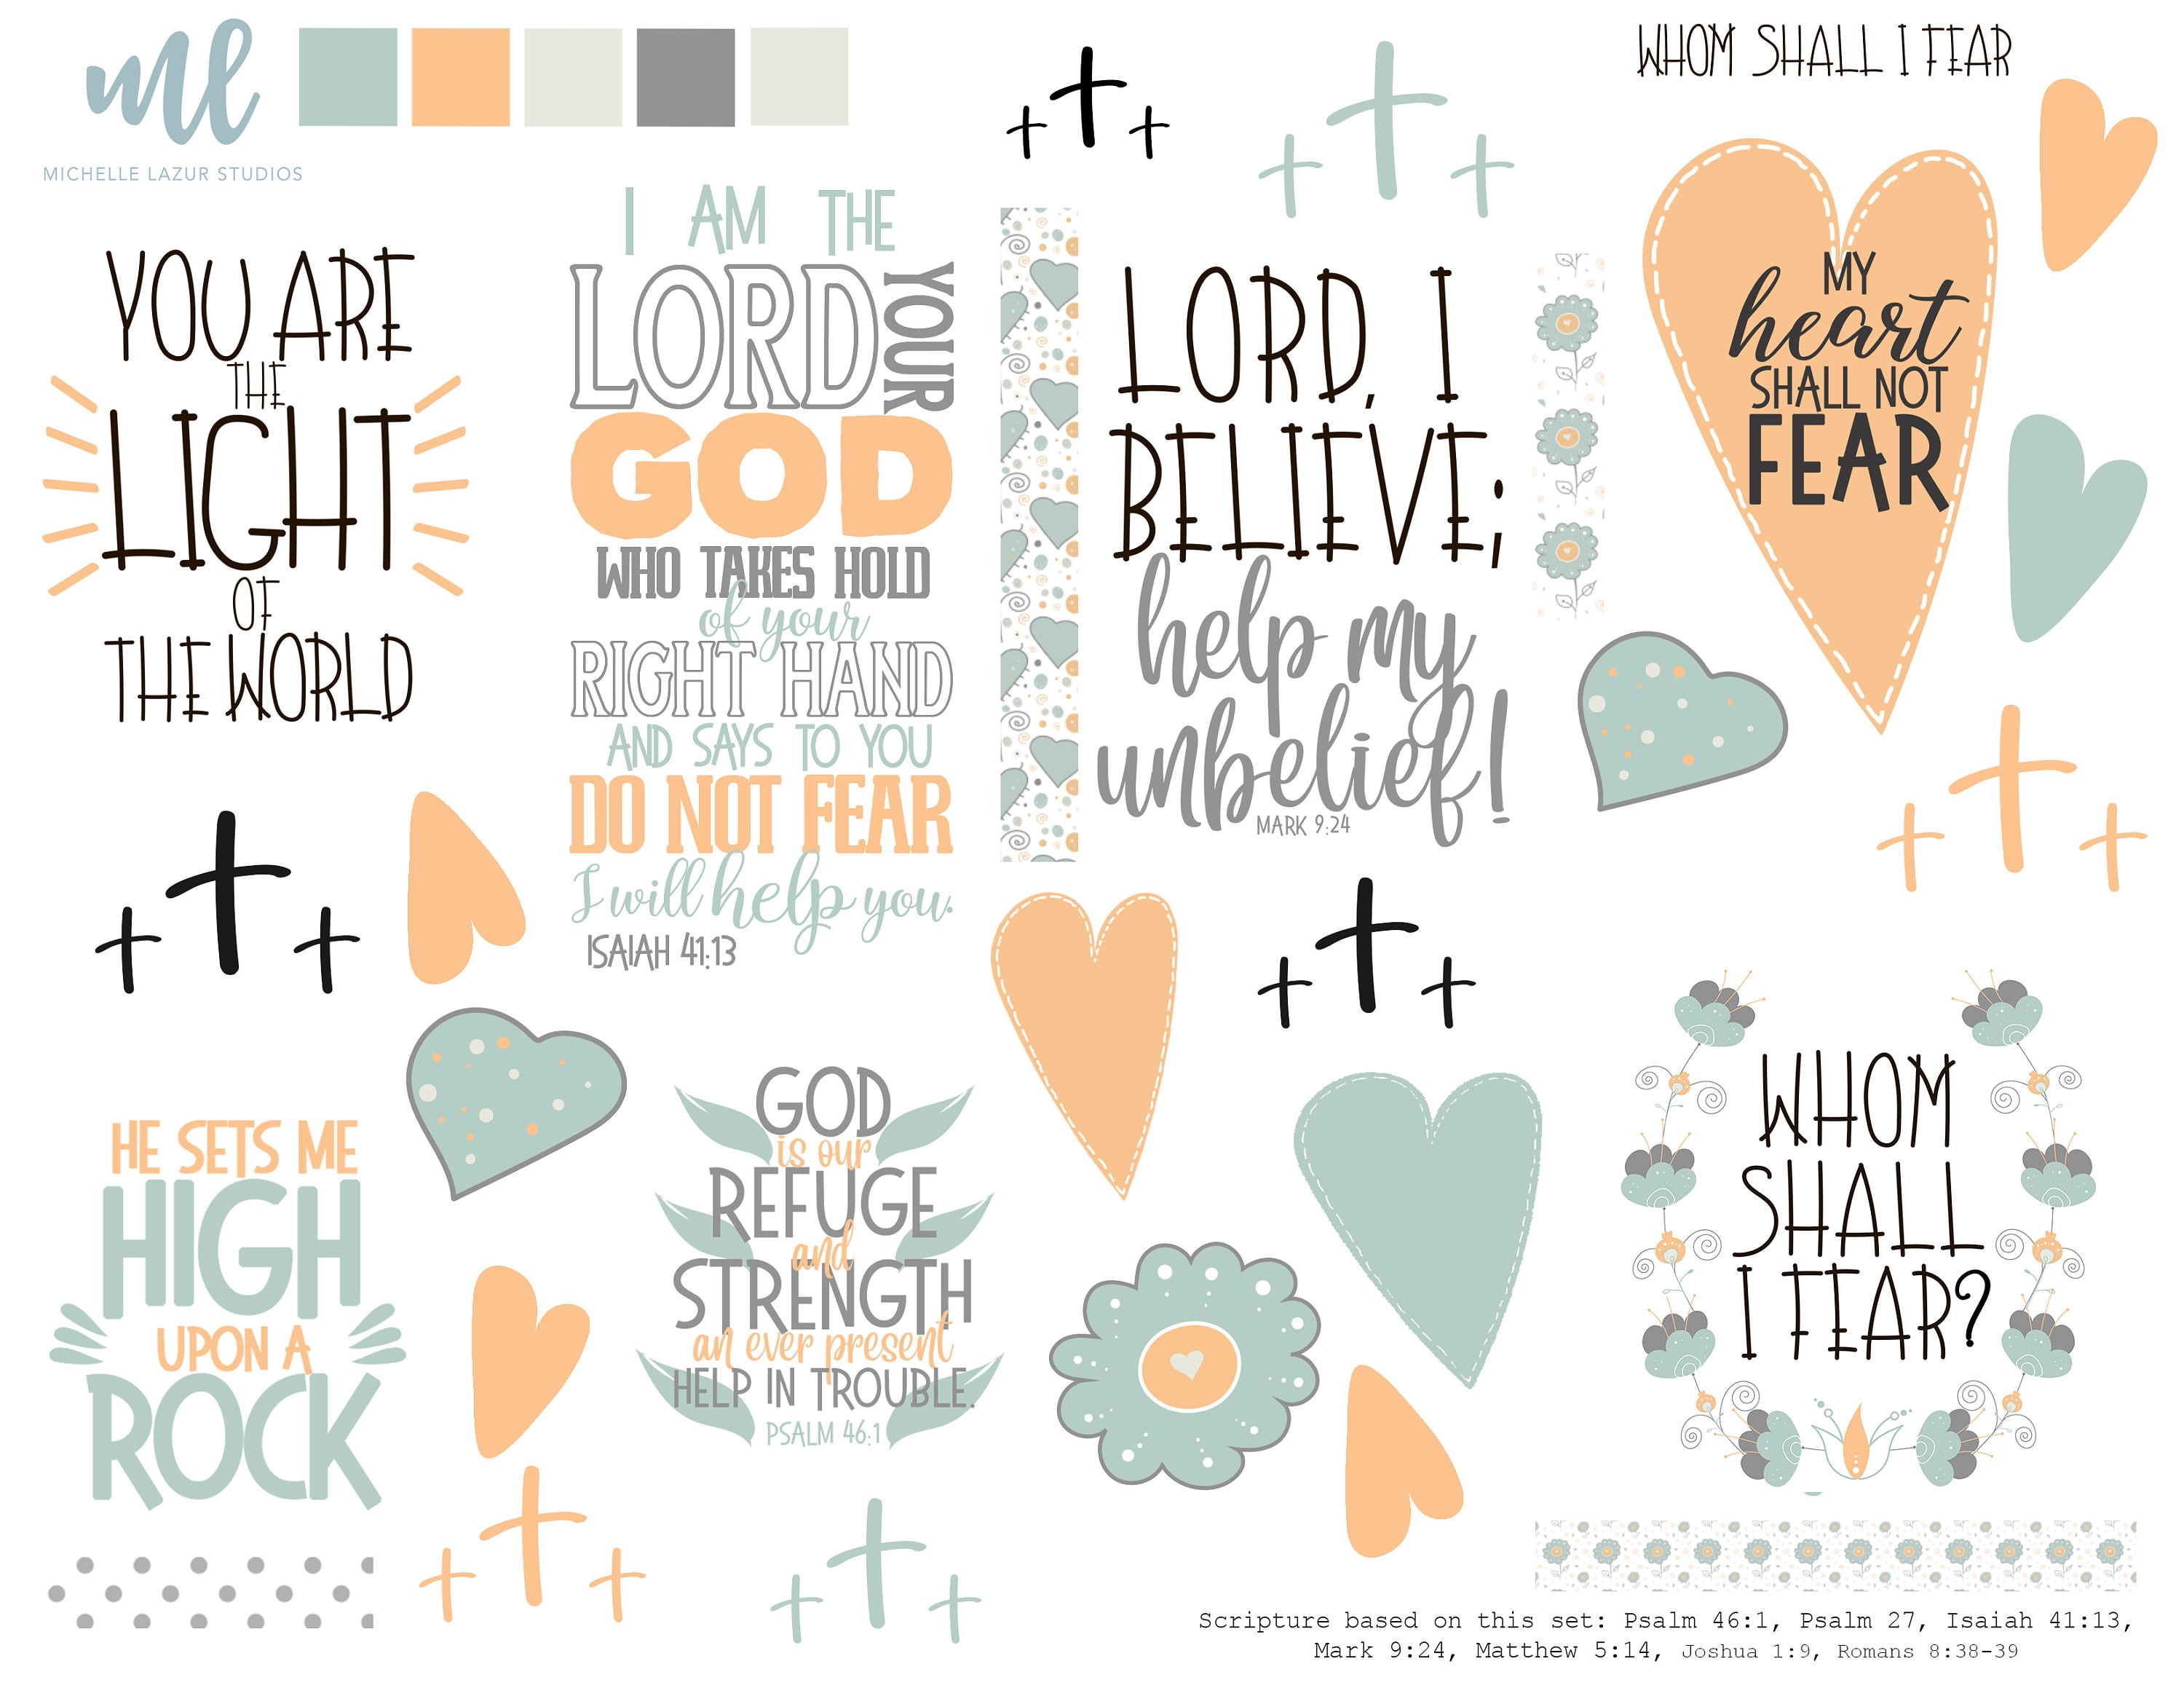 ml
MICHELLE LAZUR STUDIOS
YOU ARE
THE
LIGHT
OF
THE WORLD
I AM THE
LORD YOUR
GOD
WHO TAKES HOLD
of your
RIGHT HAND
AND SAYS TO YOU
DO NOT FEAR
I will help you.
ISAIAH 41:13
LORD, I
BELIEVE;
help my
unbelief!
MARK 9:24
WHOM SHALL I FEAR
MY
heart
SHALL NOT
FEAR
HE SETS ME
HIGH
UPON A
ROCK
GOD
is our
REFUGE
and
STRENGTH
an ever present
HELP IN TROUBLE.
PSALM 46:1
WHOM
SHALL
I FEAR?
Scripture based on this set: Psalm 46:1, Psalm 27, Isaiah 41:13,
Mark 9:24, Matthew 5:14, Joshua 1:9, Romans 8:38-39